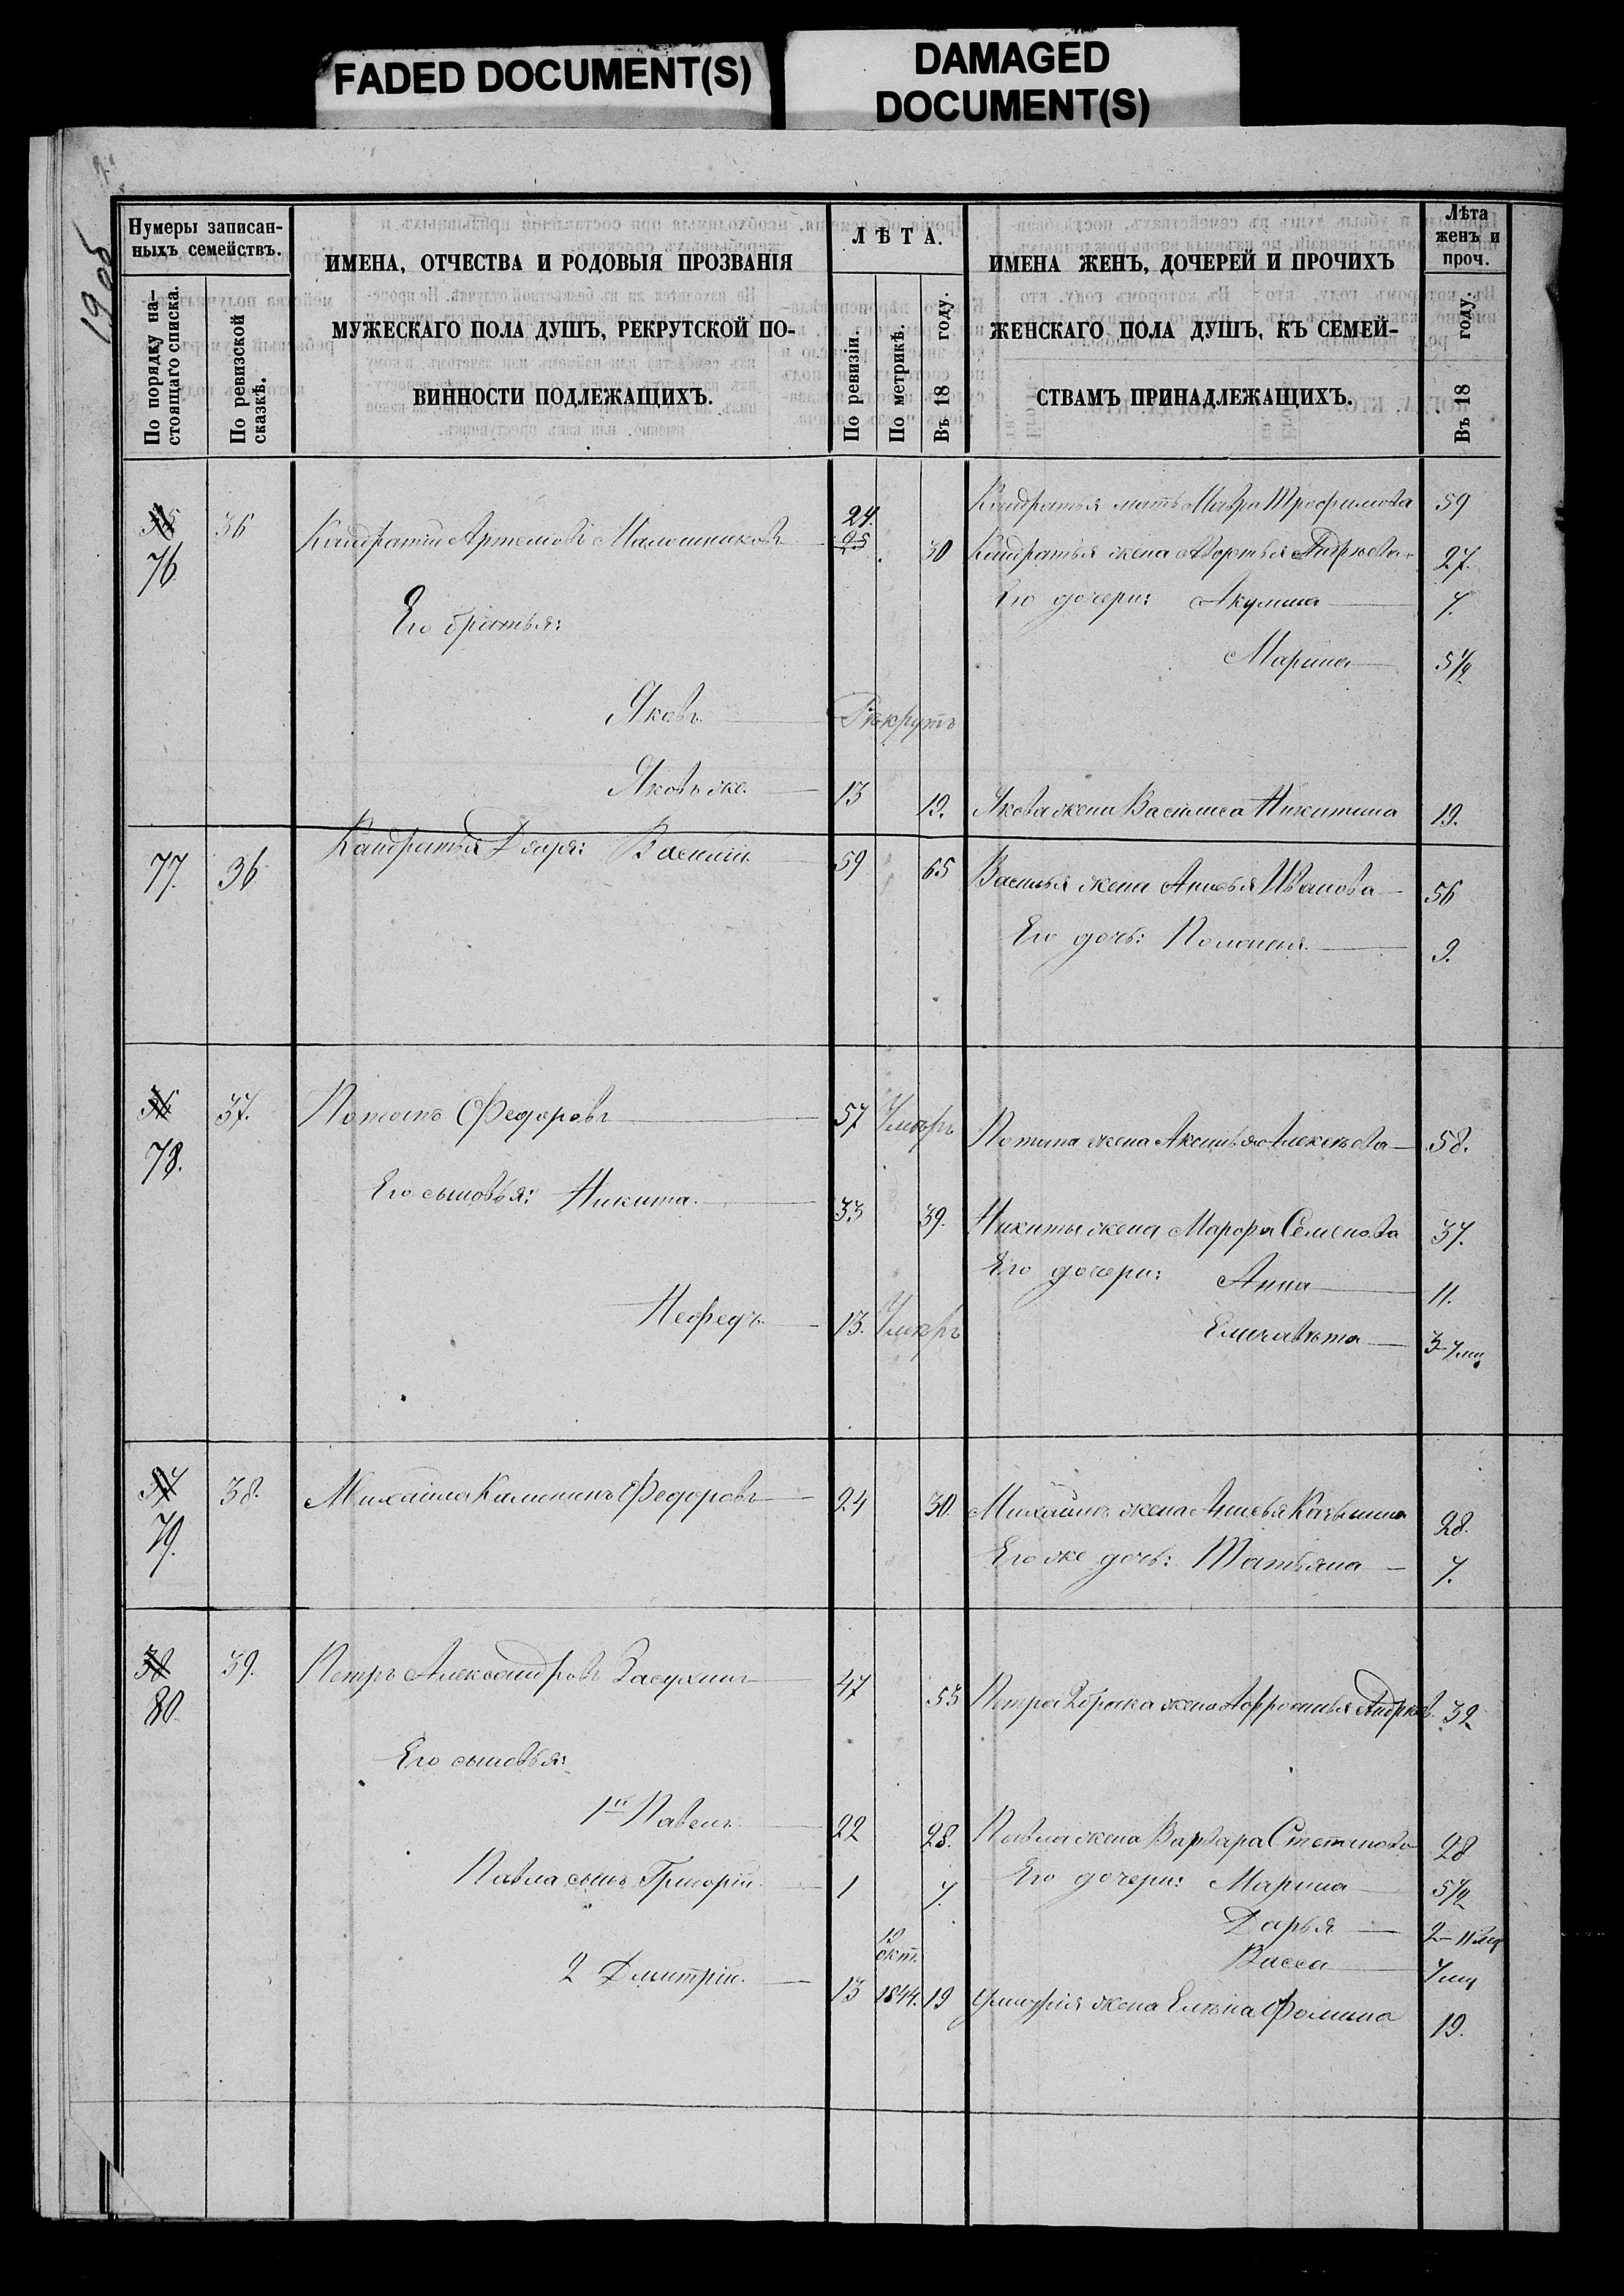 FADED DOCUMENT(S)
DAMAGED DOCUMENT(S)
Нумеры записан-
ныхъ семействъ.
По порядку на-
стоящаго списка.
По ревизской
сказкѣ.
ИМЕНА, ОТЧЕСТВА И РОДОВЫЯ ПРОЗВАНІЯ
МУЖЕСКАГО ПОЛА ДУШЪ, РЕКРУТСКОЙ ПО-
ВИННОСТИ ПОДЛЕЖАЩИХЪ.
ЛѢТА.
По ревизіи.
По метрикѣ.
Въ 18 году.
ИМЕНА ЖЕНЪ, ДОЧЕРЕЙ И ПРОЧИХЪ
ЖЕНСКАГО ПОЛА ДУШЪ, КЪ СЕМЕЙ-
СТВАМЪ ПРИНАДЛЕЖАЩИХЪ.
Лѣта
женъ и
проч.
Въ 18 году.
Кандратья мать Мавра Трофимова 59
35 36 Кандратій Артемовъ 24. 25 30 Кандратья жена Андреева 27.
76
Его братья: Его дочери: Акулина 7.
Марина 5 1/2
Яковъ Рекрутъ
Яковъ же 13 19. Якова жена Василиса Никитина 19.
77. 36 Кандратья Дядя: Василій 59 65 Василья жена Анисья Иванова 56
Его дочь: 9.
36 37. Потапъ Федоровъ 57 Умеръ Потапа жена Аксинья Алексѣева 58.
78.
Его сыновья: Никита 33 39. Никиты жена Марфа Семенова 37.
Его дочери: Анна 11.
Нефедъ 13. Умеръ Елизавѣта 3-7 мц
37 38. Михайла Калининъ Федоровъ 24 30. жена Анисья 28.
79. Его же дочь: Татьяна 7.
38 39. Петръ Александровъ Засухинъ 47 53 Петра 2 брака жена Афросинья Андрѣев. 39
80.
Его сыновья:
1й Павелъ 22 28. Павла жена Варвара Степанова 28
Павла сынъ Григорій 1 7. Его дочери: Марина 5 1/2
Дарья 2-11 мц
Васса 7 мц
окт.
2 Дмитрій. 13 1844. 19 Дмитрія жена Елена Фомина 19.